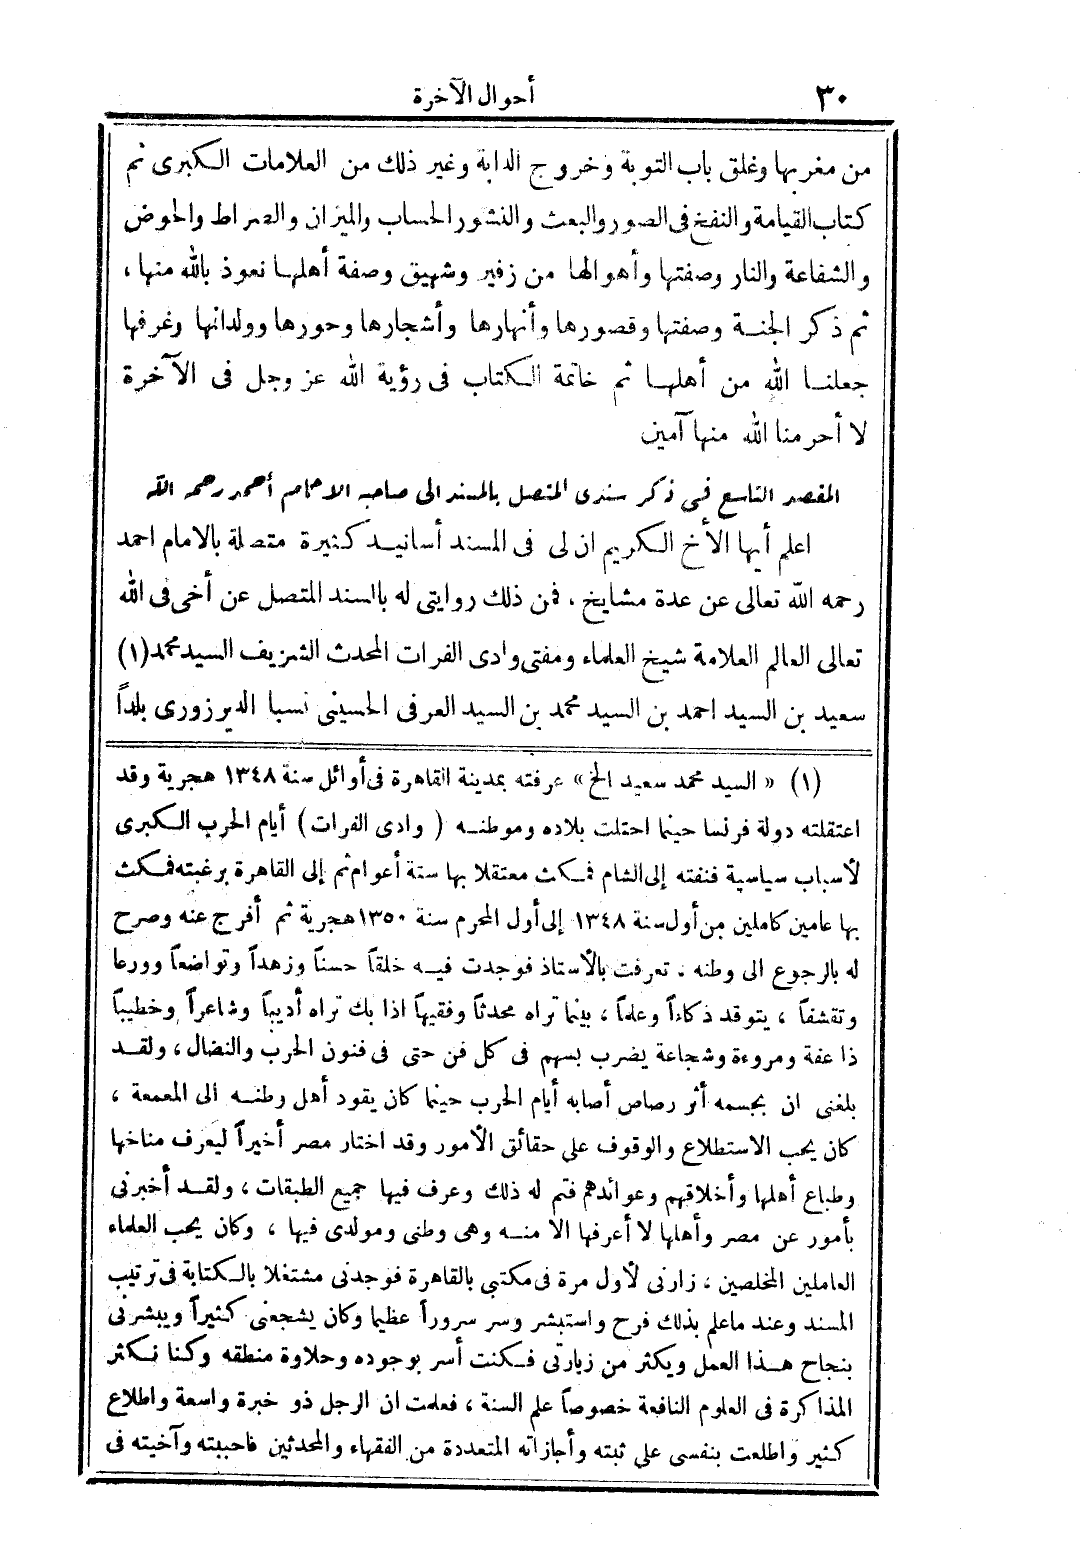 ٣٠
أحوال الآخرة
من مغربها وغلق باب التوبة وخروج الدابة وغير ذلك من العلامات الكبرى ثم
كتاب القيامة والنفخ فى الصور والبعث والنشور الحساب والميزان والصراط والحوض
والشفاعة والنار وصفتها وأهوالها من زفير وشهيق وصفة أهلها نعوذ بالله منها ،
ثم ذكر الجنة وصفتها وقصورها وأنهارها وأشجارها وحورها وولدانها وغرفها
جعلنا الله من أهلها ثم خاتمة الكتاب فى رؤية الله عز وجل فى الآخرة
لا أحرمنا الله منها آمين
المقصد التاسع فى ذكر سندى المتصل بالمسند الى صاحبه الامام أحمد رحمه الله
اعلم أيها الأخ الكريم ان لى فى المسند أسانيد كثيرة متصلة بالامام احمد
رحمه الله تعالى عن عدة مشايخ ، فمن ذلك روايتى له بالسند المتصل عن أخى فى الله
تعالى العالم العلامة شيخ العلماء ومفتى وادى الفرات المحدث الشريف السيد محمد (١)
سعيد بن السيد احمد بن السيد محمد بن السيد العرفى الحسينى نسبا الديرزورى بلداً
(١) « السيد محمد سعيد الخ » عرفته بمدينة القاهرة فى أوائل سنة ١٣٤٨ هجرية وقد
اعتقلته دولة فرنسا حينما احتلت بلاده وموطنه ( وادى الفرات ) أيام الحرب الكبرى
لأسباب سياسية فنفته إلى الشام فمكث معتقلا بها ستة أعوام ثم إلى القاهرة برغبته فمكث
بها عامين كاملين من أول سنة ١٣٤٨ إلى أول المحرم سنة ١٣٥٠ هجرية ثم أفرج عنه وصرح
له بالرجوع الى وطنه ، تعرفت بالأستاذ فوجدت فيه خلقاً حسناً وزهداً وتواضعاً وورعا
وتقشفاً ، يتوقد ذكاءاً وعلماً ، بينما تراه محدثاً وفقيهاً اذا بك تراه أديباً وشاعراً وخطيباً
ذا عفة ومروءة وشجاعة يضرب بسهم فى كل فن حتى فى فنون الحرب والنضال ، ولقد
بلغنى ان بجسمه أثر رصاص أصابه أيام الحرب حينما كان يقود أهل وطنه الى المعمعة ،
كان يحب الاستطلاع والوقوف على حقائق الأمور وقد اختار مصر أخيراً ليعرف مناخها
وطباع أهلها وأخلاقهم وعوائدهم فتم له ذلك وعرف فيها جميع الطبقات ، ولقد أخبرنى
بأمور عن مصر وأهلها لا أعرفها الا منه وهى وطنى ومولدى فيها ، وكان يحب العلماء
العاملين المخلصين ، زارنى لأول مرة فى مكتبى بالقاهرة فوجدنى مشتغلا بالكتابة فى ترتيب
المسند وعند ماعلم بذلك فرح واستبشر وسر سروراً عظيما وكان يشجعنى كثيراً ويبشرنى
بنجاح هذا العمل ويكثر من زيارتى فكنت أسر بوجوده وحلاوة منطقه وكنا نكثر
المذاكرة فى العلوم النافعة خصوصاً علم السنة ، فعلمت ان الرجل ذو خبرة واسعة واطلاع
كثير واطلعت بنفسى على ثبته وأجازاته المتعددة من الفقهاء والمحدثين فاحببته وآخيته فى